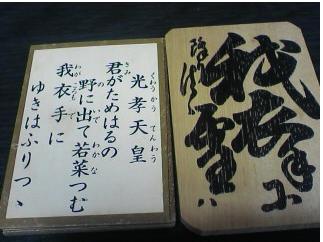 光孝天皇
くわうかうてんわう
君がためはるの
きみ
野に出て若菜つむ
のいでわかな
我衣手に
わがころもで
ゆきはふりつゝ
我衣手に
雪ハ